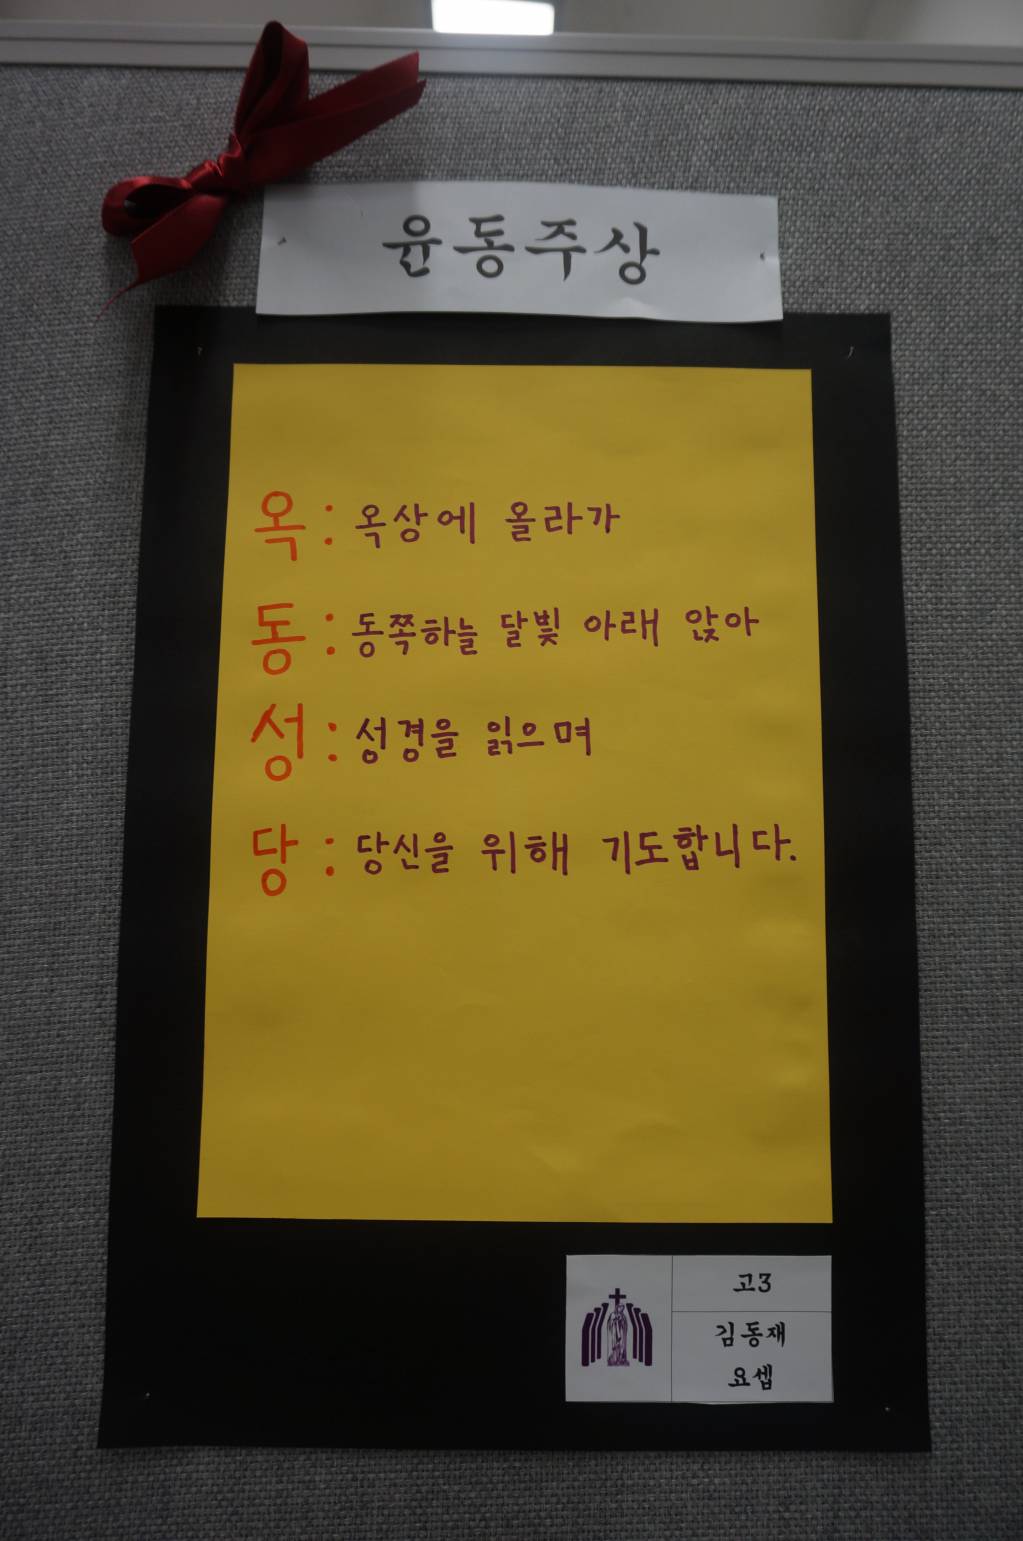 윤동주상
옥 : 옥상에 올라가
동 : 동쪽하늘 달빛 아래 앉아
성 : 성경을 읽으며
당 : 당신을 위해 기도합니다.
고3
김동재
요셉